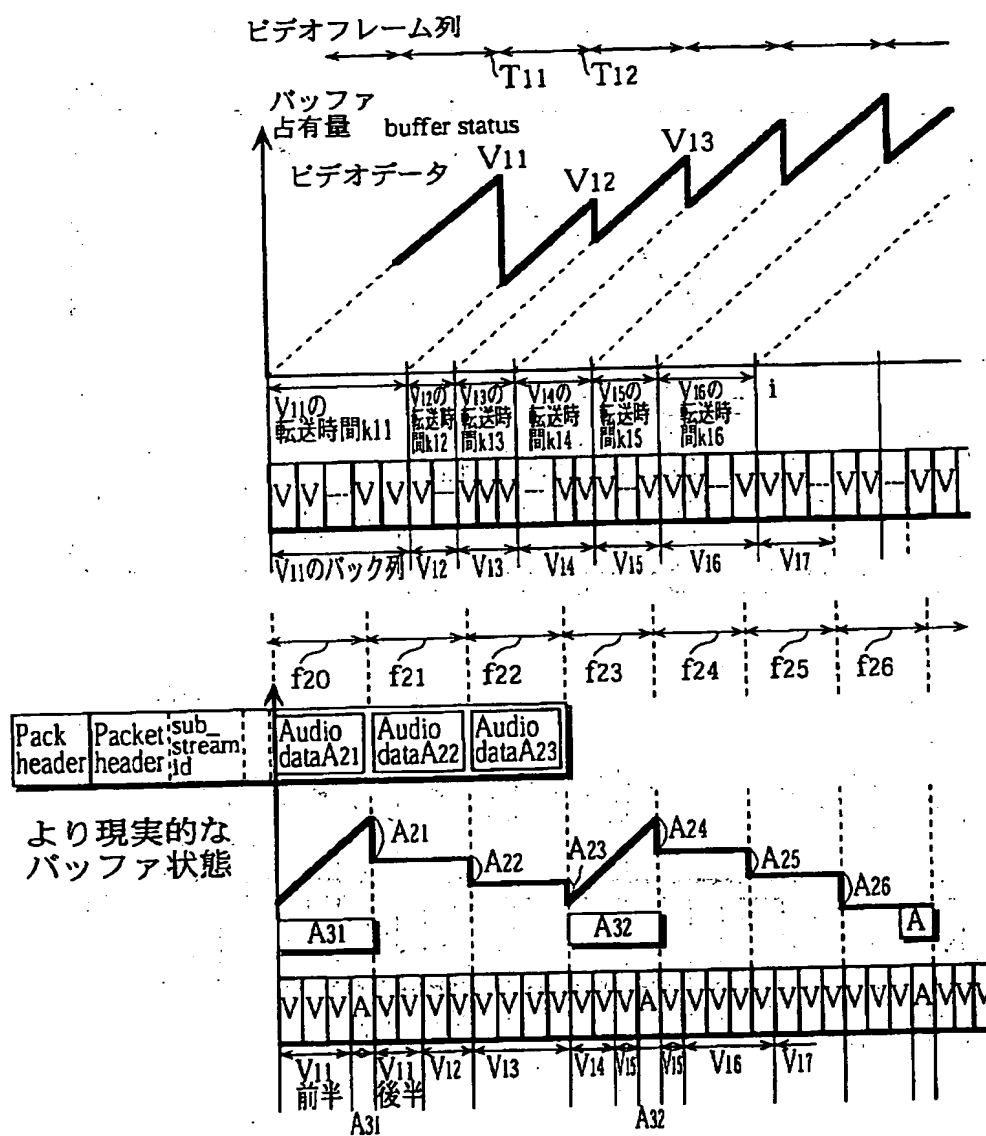 ビデオフレーム列
T11 T12
バッファ
占有量 buffer status
ビデオデータ
V11 V12 V13
V11の
転送時間k11
V12の
転送時
間k12
V13の
転送時
間k13
V14の
転送時
間k14
V15の
転送時
間k15
V16の
転送時
間k16
i
V V --- V V V --- V V V --- V V V --- V V V --- V V V --- V V --- V V
V11のパック列 V12 V13 V14 V15 V16 V17
f20 f21 f22 f23 f24 f25 f26
Pack
header
Packet
header
sub_
stream
id
Audio
dataA21
Audio
dataA22
Audio
dataA23
より現実的な
バッファ状態
A21 A22 A23 A24 A25 A26
A31 A32 A
V V V A V V V V V V V V V V V A V V V V V V V V V V V A V V V
V11
前半
V11
後半
V12 V13 V14 V15 V15 V16 V17
A31 A32